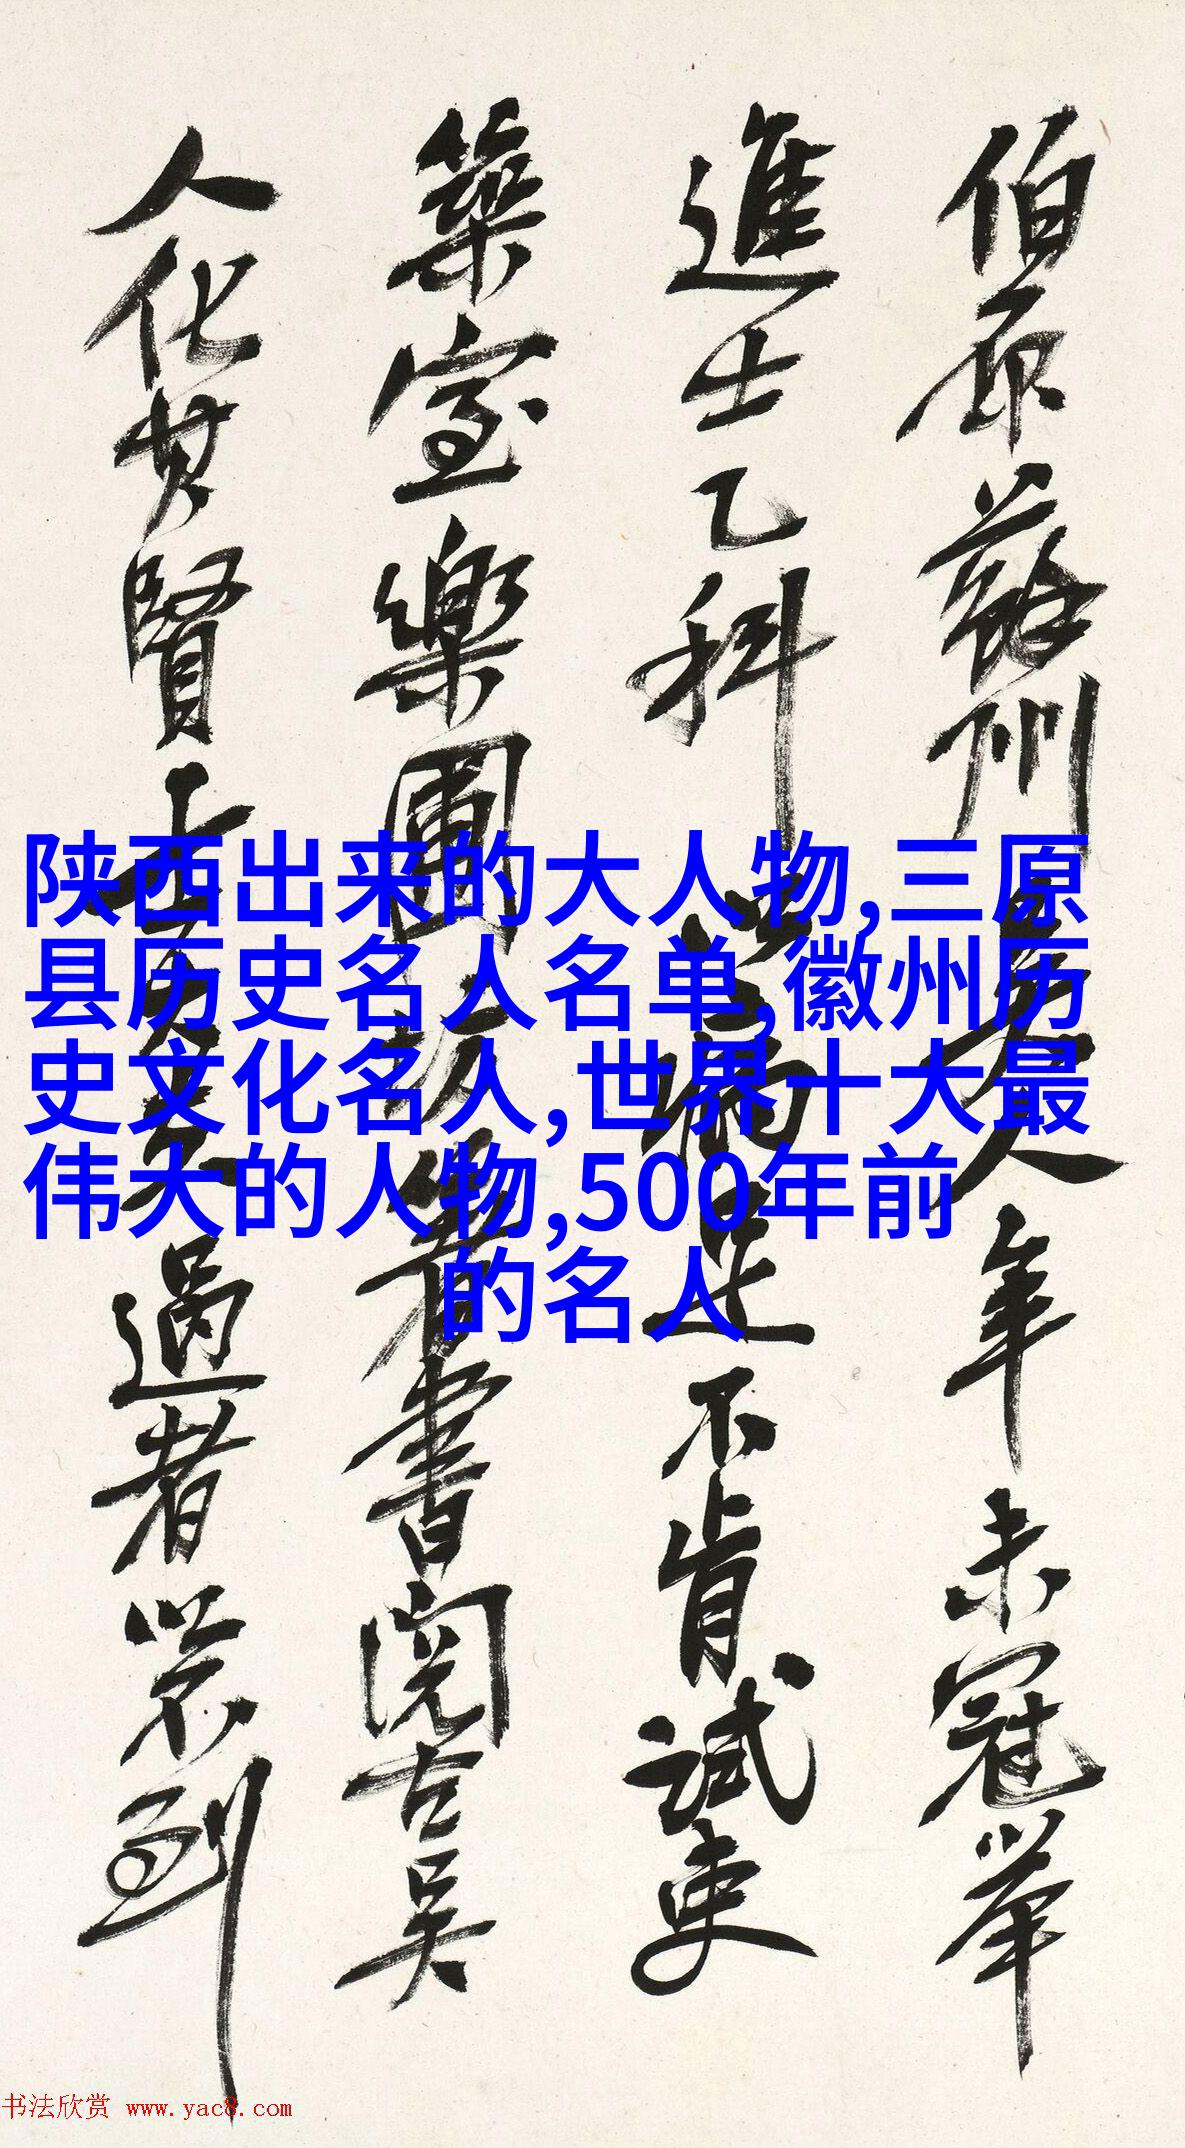 伯原蘇州人年未冠舉
進士乙科以病足不肯試吏
築室樂圃坊著書閱古吳
人化其賢士大夫過者以不到
陕西出来的大人物,三原
县历史名人名单,徽州历
史文化名人,世界十大最
伟大的人物,500年前
的名人
书法欣赏 www.yac8.com